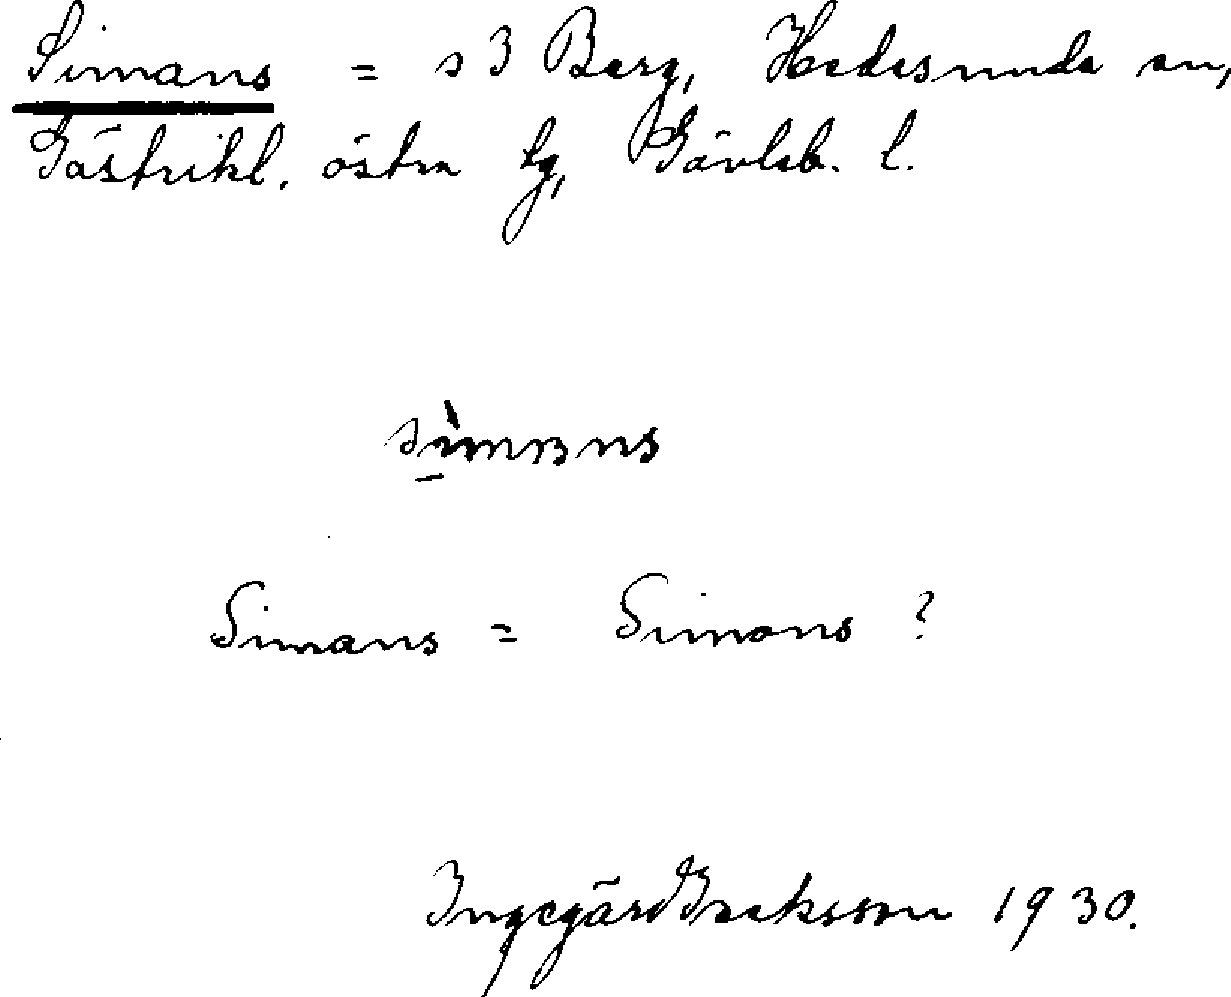 Simans = s 3 Berg, Hedesunda sn,
Gästrikl. östra tg, Gävleb. l.
Simans = Simons ?
Ingegärd Isaksson 1930.